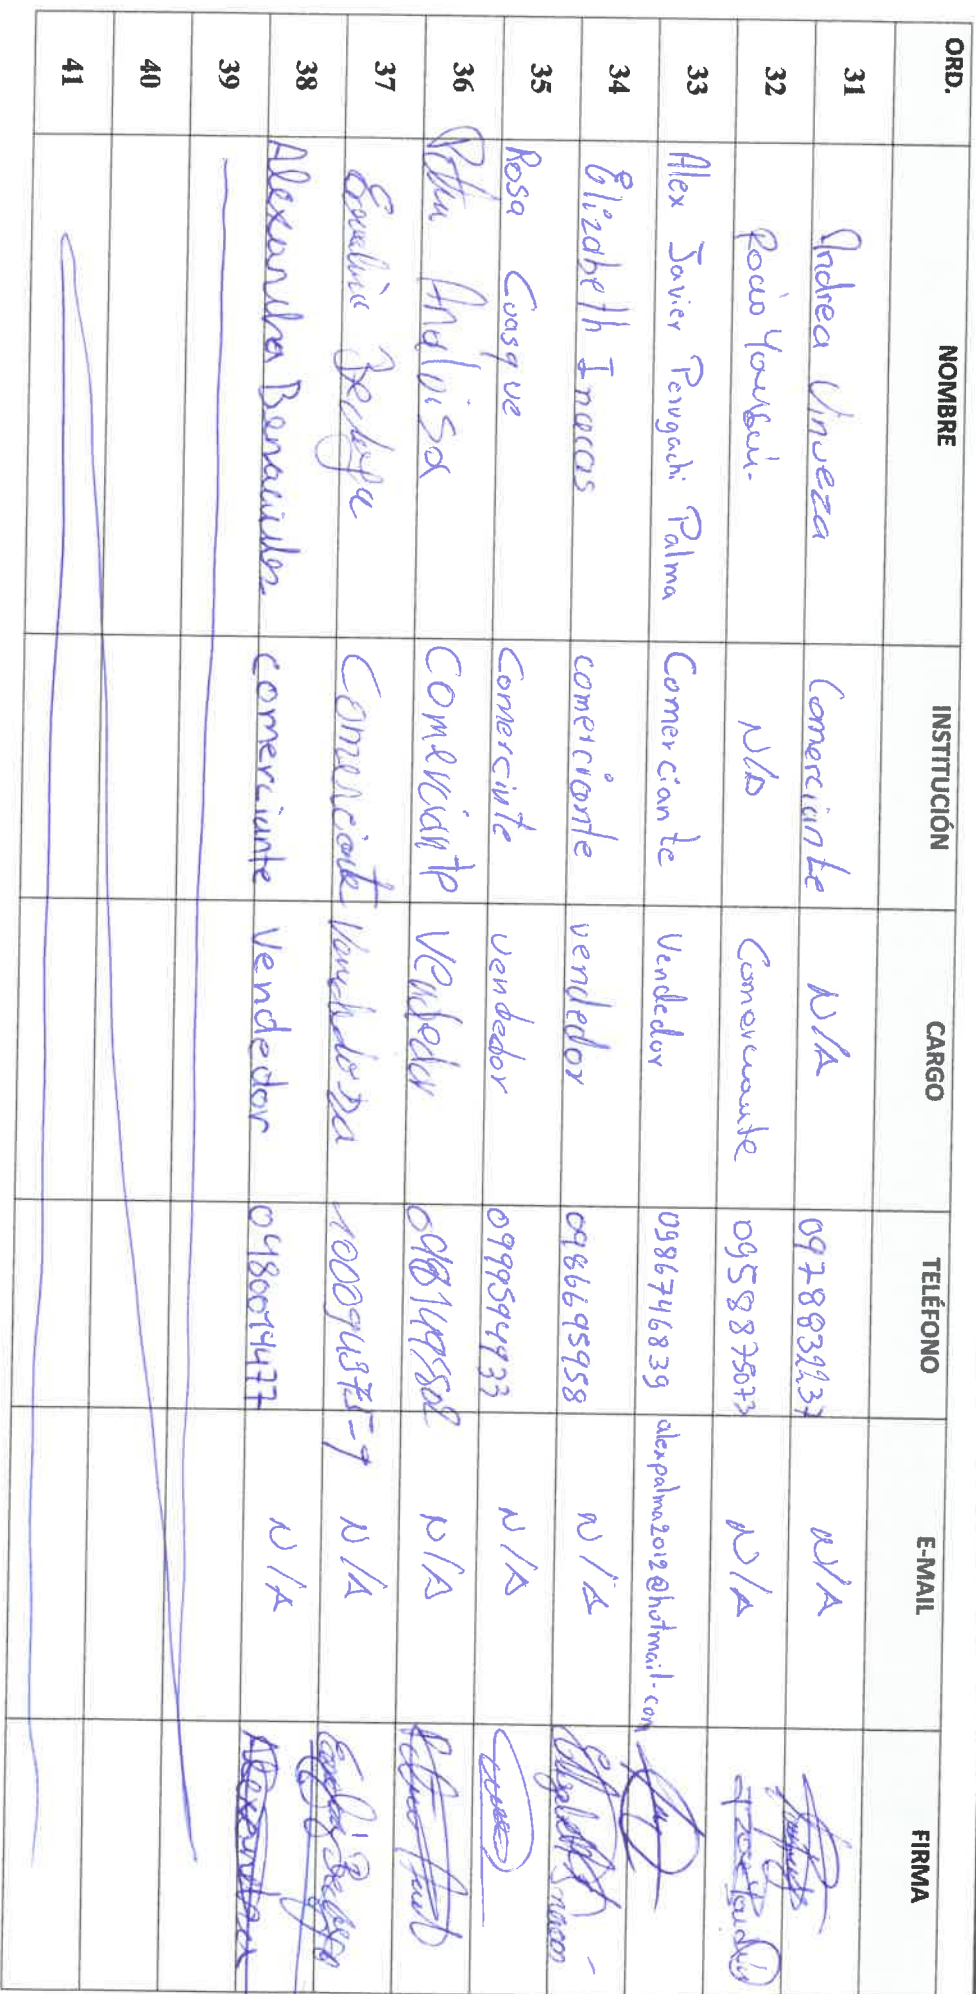 ORD. NOMBRE INSTITUCIÓN CARGO TELÉFONO E-MAIL FIRMA
31 Andrea Vinueza Comerciante N/A 0978832237 N/A
32 Rocio N/A Comerciante 0958875073 N/A
33 Alex Javier Perugachi Palma Comerciante Vendedor 0986746839 alexpalma2012@hotmail.com
34 Elizabeth Inaccas comerciante vendedor 0986695958 N/A
35 Rosa Cuasque Comercinte vendedor 0999594933 N/A
36 Andluisa Comerciante Vendedor N/A
37 Comerciante N/A
38 Alexandra Benavides comerciante Vendedor 0480014477 N/A
39
40
41